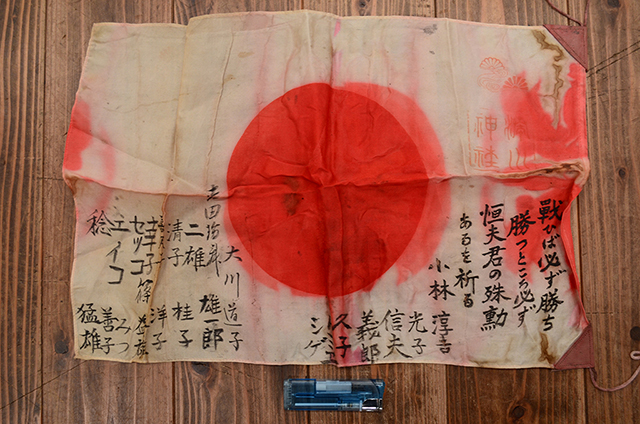 戦ひば必ず勝ち
勝つところ必ず
恒夫君の殊勲
あるを祈る
小林 淳吉
光子
信夫
義郎
久子
シゲ
大川 道子
雄郎
二雄 桂子
清子 洋子
幸子
セツコ
エイコ みつ
善子
稔 猛雄
神社